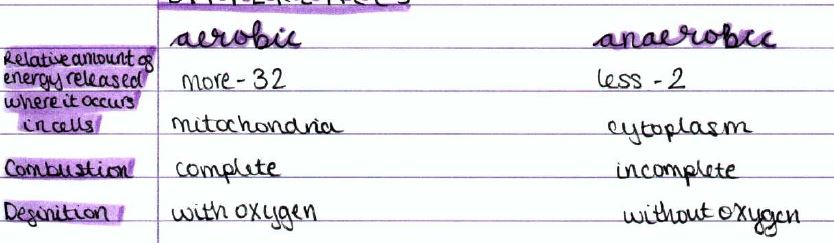 aerobic anaerobic
Relative amount of
energy released more - 32 less - 2
where it occurs
in cells mitochondria cytoplasm
Combustion complete incomplete
Definition with oxygen without oxygen